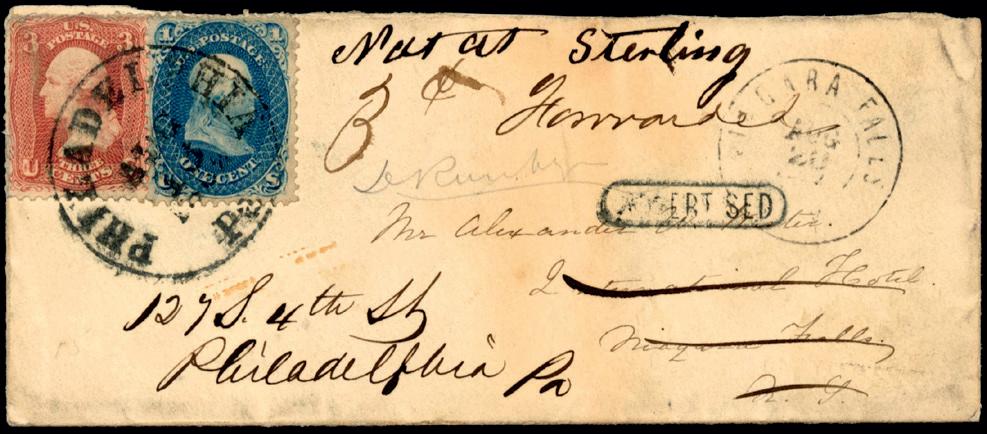 3 U.S. 3
POSTAGE
U THREE CENTS S
1 1
POSTAGE
U ONE CENT S
PHILADELPHIA Pa
Not at Sterling
3 c Forwarded
NIAGARA FALLS
ADVERTISED
Mr Alexander
International Hotel.
Niagara Falls.
N. Y.
127 S. 4th St
Philadelphia Pa